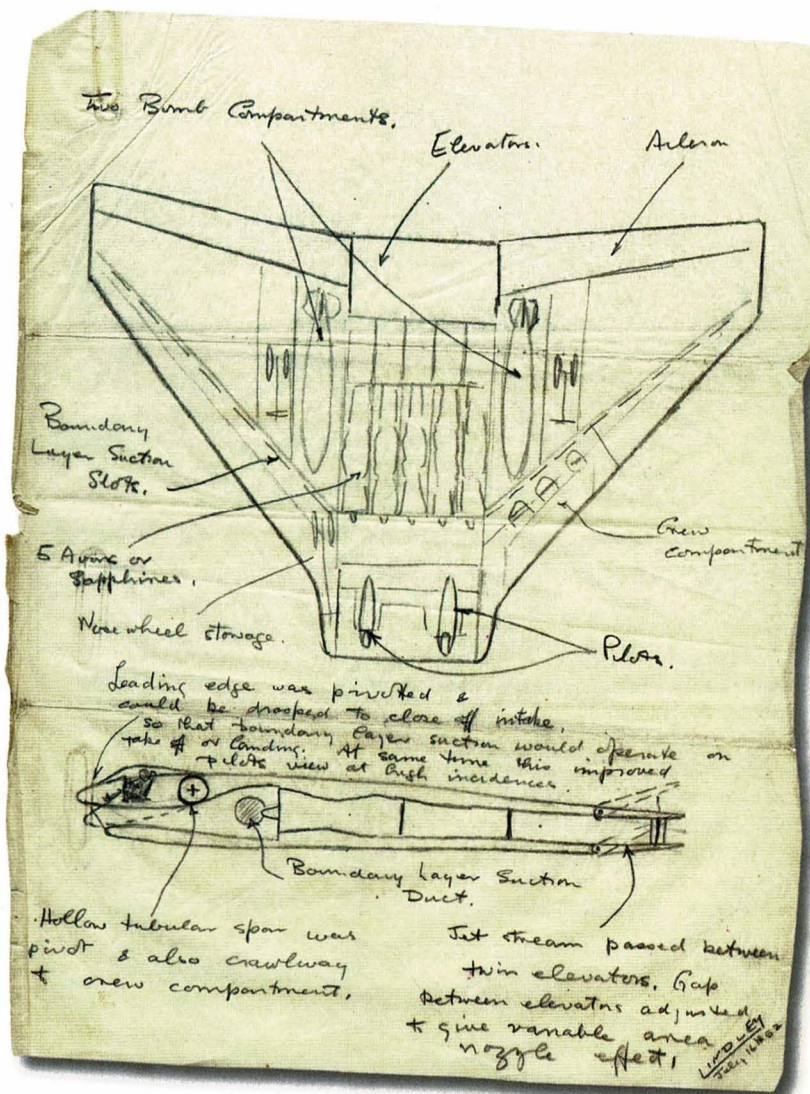 Two Bomb Compartments.
Elevators.
Aileron
Boundary
Layer Suction
Slots.
5 Avons or
Sapphires.
Nose wheel stowage.
Crew
compartment
Pilots.
Leading edge was pivotted &
could be drooped to close off intake,
so that boundary layer suction would operate on
take off or landing. At same time this improved
pilots view at high incidences.
Boundary Layer Suction
Duct.
Hollow tubular spar was
pivot & also crawlway
to crew compartment.
Jet stream passed between
twin elevators. Gap
between elevators adjusted
to give variable area
nozzle effect.
LINDLEY
July 16th 82